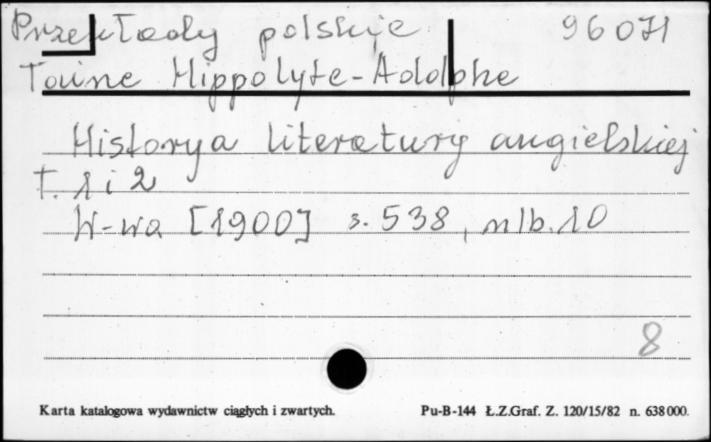 Przekłady polskie 96071
Taine Hippolyte-Adolphe
Historya literatury angielskiej
T. 1 i 2
W-wa [1900] s. 538, nlb. 10
8
Karta katalogowa wydawnictw ciągłych i zwartych. Pu-B-144 Ł.Z.Graf. Z. 120/15/82 n. 638000.